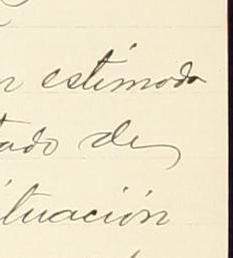 n estimado
tado de
ituación